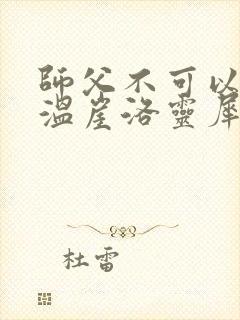 師父不可以
溫崖洛靈犀
杜雷